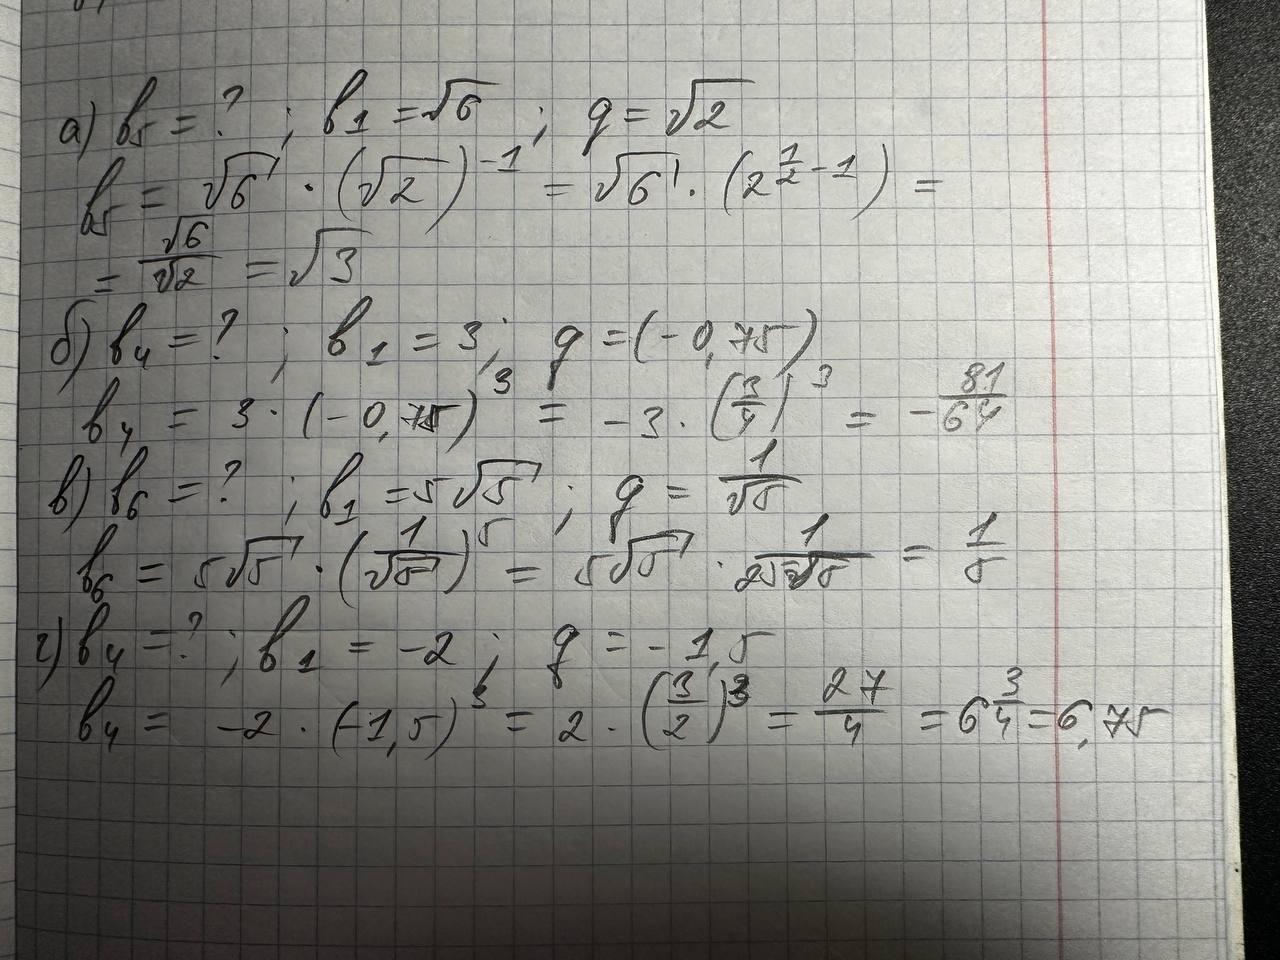 а) b₅ = ? ; b₁ = √6 ; q = √2
b₅ = √6 · (√2)⁻¹ = √6 · (2^(1/2 - 1)) =
= √6/√2 = √3
б) b₄ = ? ; b₁ = 3; q = (-0,75)
b₄ = 3 · (-0,75)³ = -3 · (3/4)³ = -81/64
в) b₆ = ? ; b₁ = 5√5 ; q = 1/√5
b₆ = 5√5 · (1/√5)⁵ = 5√5 · 1/25√5 = 1/5
г) b₄ = ? ; b₁ = -2 ; q = -1,5
b₄ = -2 · (-1,5)³ = 2 · (3/2)³ = 27/4 = 6 3/4 = 6,75